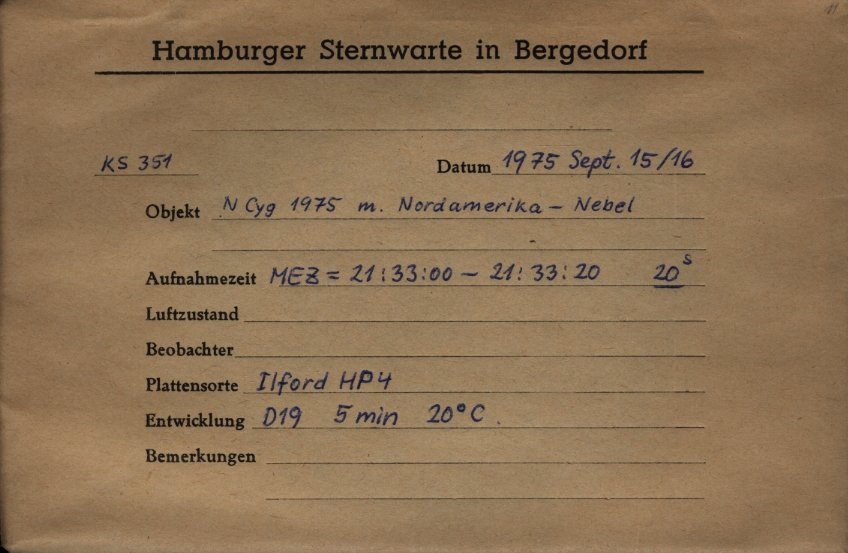 Hamburger Sternwarte in Bergedorf
KS 351 Datum 1975 Sept. 15/16
Objekt N Cyg 1975 m. Nordamerika - Nebel
Aufnahmezeit MEZ = 21:33:00 - 21:33:20 20s
Luftzustand
Beobachter
Plattensorte Ilford HP4
Entwicklung D19 5 min 20°C.
Bemerkungen